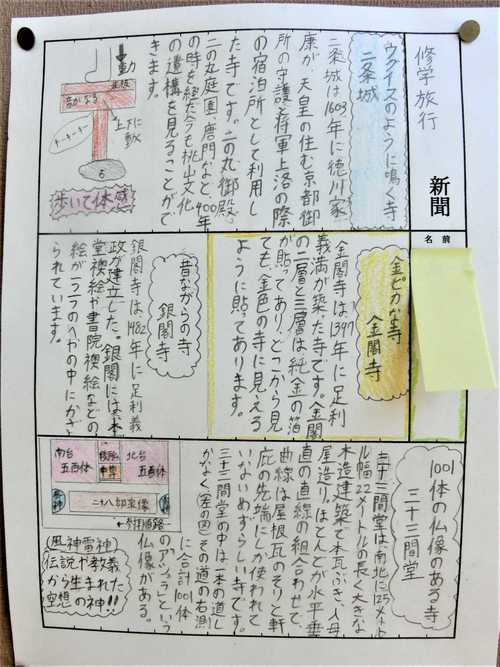 修学旅行
新聞
名前
ウグイスのように鳴く寺
二条城
二条城は1603年に徳川家
康が、天皇の住む京都御
所の守護と将軍上洛の際
の宿泊所として利用し
た寺です。二の丸御殿、
二の丸庭園、唐門など400年
の時を経た今も桃山文化
の遺構を見ることがで
きます。
動
音がなる
上下に
動く
歩いて体感
金ピカな寺
金閣寺
金閣寺は、1397年に足利
義満が築た寺です。金閣
の二層と三層は、純金の箔
が貼ってあり、どこから見
ても金色の寺に見える
ように貼ってあります。
昔ながらの寺
銀閣寺
銀閣寺は、1482年に足利義
政が建立した。銀閣には、本
堂襖絵や書院襖絵などの
絵が一つ一つのへやの中にかざ
られています。
1001体の仏像のある寺
三十三間堂
三十三間堂は南北に125メート
ル幅22メートルの長く大きな
木造建築で本瓦ぶき、入母
屋造り。ほとんどが水平垂
直の直線の組合わせで、
曲線は屋根瓦のそりと軒
庇の先端にしか使われて
いないめずらしい寺です。
三十三間堂の中は一本の道し
かなく(左の図)その道の右測
に合計1001体
の「アシュラ」という
仏像がある。
南台
五百体
中尊
北台
五百体
二十八部衆像
参拝通路
(風神雷神)
伝説や教義
から生まれた
空想の神!!